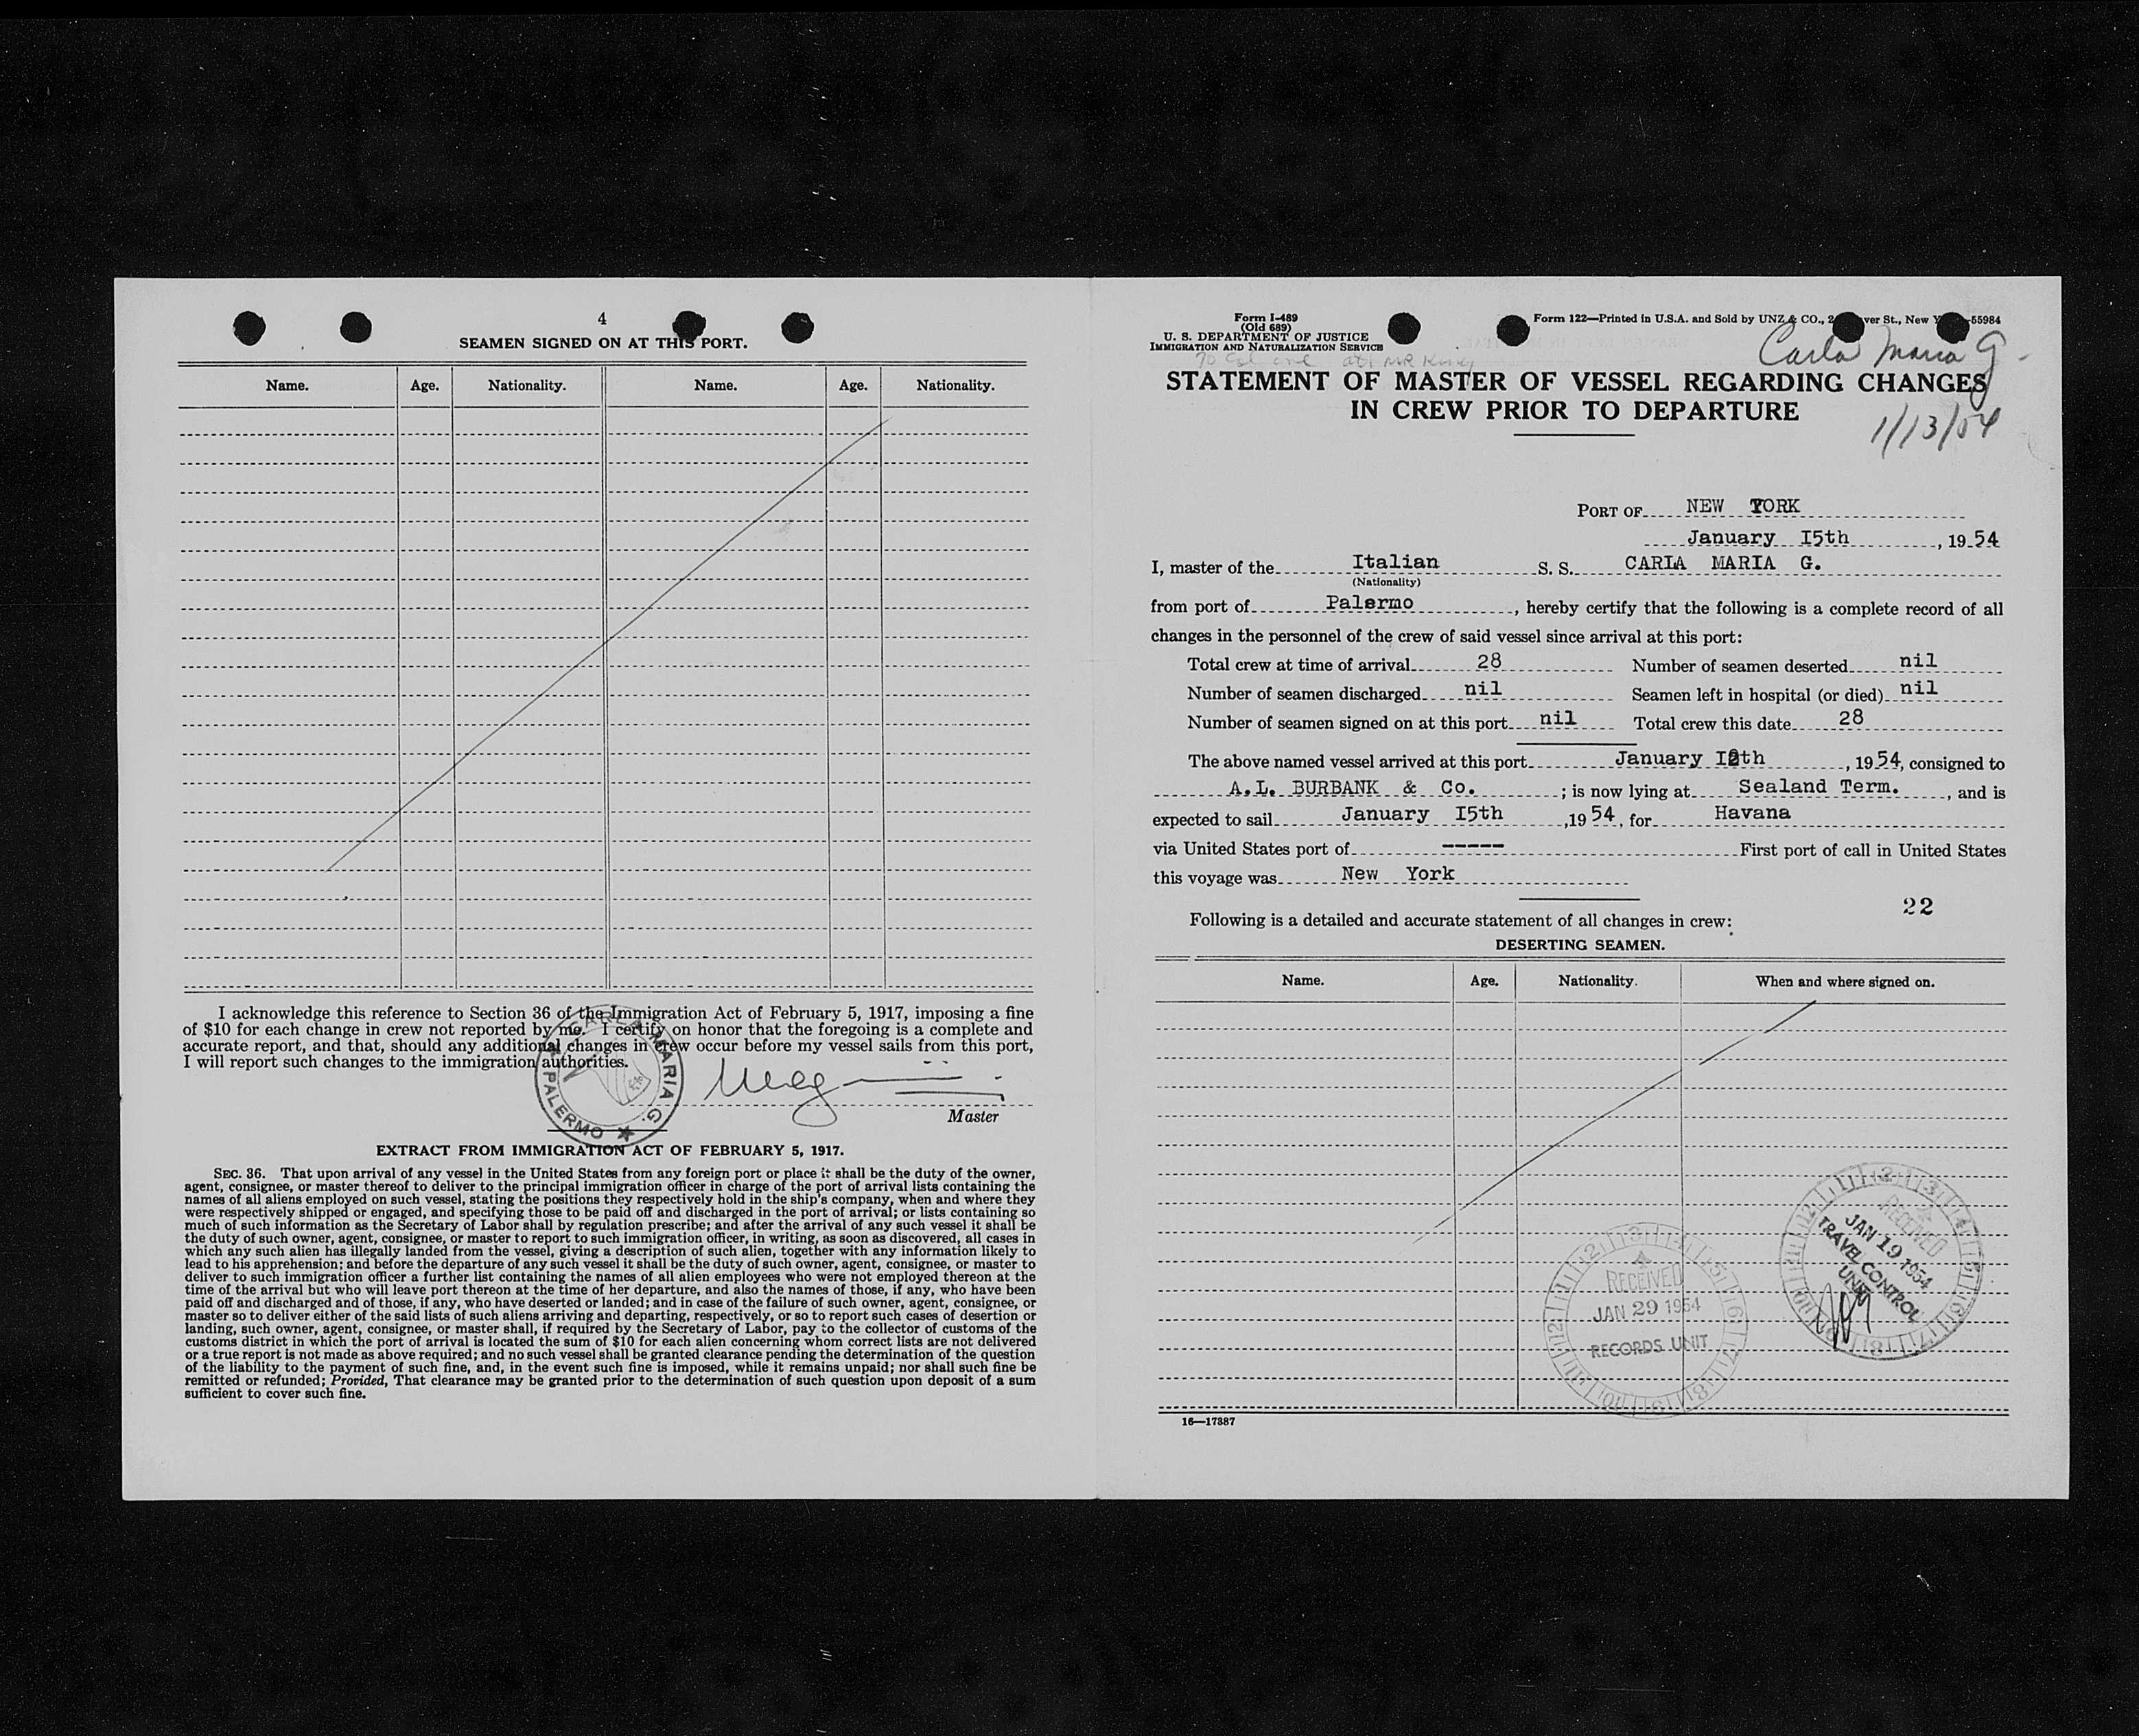 4
SEAMEN SIGNED ON AT THIS PORT.
Name. Age. Nationality. Name. Age. Nationality.
I acknowledge this reference to Section 36 of the Immigration Act of February 5, 1917, imposing a fine
of $10 for each change in crew not reported by me. I certify on honor that the foregoing is a complete and
accurate report, and that, should any additional changes in crew occur before my vessel sails from this port,
I will report such changes to the immigration authorities.
CARLA MARIA G.
PALERMO
Master
EXTRACT FROM IMMIGRATION ACT OF FEBRUARY 5, 1917.
SEC. 36. That upon arrival of any vessel in the United States from any foreign port or place it shall be the duty of the owner,
agent, consignee, or master thereof to deliver to the principal immigration officer in charge of the port of arrival lists containing the
names of all aliens employed on such vessel, stating the positions they respectively hold in the ship's company, when and where they
were respectively shipped or engaged, and specifying those to be paid off and discharged in the port of arrival; or lists containing so
much of such information as the Secretary of Labor shall by regulation prescribe; and after the arrival of any such vessel it shall be
the duty of such owner, agent, consignee, or master to report to such immigration officer, in writing, as soon as discovered, all cases in
which any such alien has illegally landed from the vessel, giving a description of such alien, together with any information likely to
lead to his apprehension; and before the departure of any such vessel it shall be the duty of such owner, agent, consignee, or master to
deliver to such immigration officer a further list containing the names of all alien employees who were not employed thereon at the
time of the arrival but who will leave port thereon at the time of her departure, and also the names of those, if any, who have been
paid off and discharged and of those, if any, who have deserted or landed; and in case of the failure of such owner, agent, consignee, or
master so to deliver either of the said lists of such aliens arriving and departing, respectively, or so to report such cases of desertion or
landing, such owner, agent, consignee, or master shall, if required by the Secretary of Labor, pay to the collector of customs of the
customs district in which the port of arrival is located the sum of $10 for each alien concerning whom correct lists are not delivered
or a true report is not made as above required; and no such vessel shall be granted clearance pending the determination of the question
of the liability to the payment of such fine, and, in the event such fine is imposed, while it remains unpaid; nor shall such fine be
remitted or refunded; Provided, That clearance may be granted prior to the determination of such question upon deposit of a sum
sufficient to cover such fine.
Form I-489
(Old 689)
U. S. DEPARTMENT OF JUSTICE
IMMIGRATION AND NATURALIZATION SERVICE
Form 122—Printed in U.S.A. and Sold by UNZ & CO., ver St., New 55984
Carla Maria G.
STATEMENT OF MASTER OF VESSEL REGARDING CHANGES
IN CREW PRIOR TO DEPARTURE
1/13/54
PORT OF NEW YORK
January I5th, 1954
I, master of the Italian S. S. CARLA MARIA G.
(Nationality)
from port of Palermo, hereby certify that the following is a complete record of all
changes in the personnel of the crew of said vessel since arrival at this port:
Total crew at time of arrival 28 Number of seamen deserted nil
Number of seamen discharged nil Seamen left in hospital (or died) nil
Number of seamen signed on at this port nil Total crew this date 28
The above named vessel arrived at this port January, 1954, consigned to
A.L. BURBANK & Co.; is now lying at Sealand Term., and is
expected to sail January I5th, 1954, for Havana
via United States port of ----- First port of call in United States
this voyage was New York
22
Following is a detailed and accurate statement of all changes in crew:
DESERTING SEAMEN.
Name. Age. Nationality. When and where signed on.
RECEIVED
JAN 19 1954
TRAVEL CONTROL
UNIT
RECEIVED
JAN 29 1954
RECORDS UNIT
16—17887